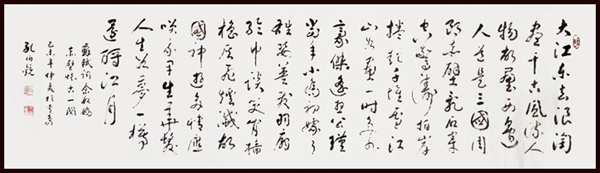 大江东去浪淘
尽千古风流人
物故垒西边
人道是三国周
郎赤壁乱石穿
空惊涛拍岸
捲起千堆雪江
山如画一时多少
豪傑遥想公瑾
当年小乔初嫁了
雄姿英发羽扇
纶巾谈笑间樯
橹灰飞烟灭故
国神遊多情应
笑我早生华髮
人生如梦一樽
還酹江月
蘇軾詞念奴嬌
赤壁怀古一阕
乙未年仲夏於
孔伯